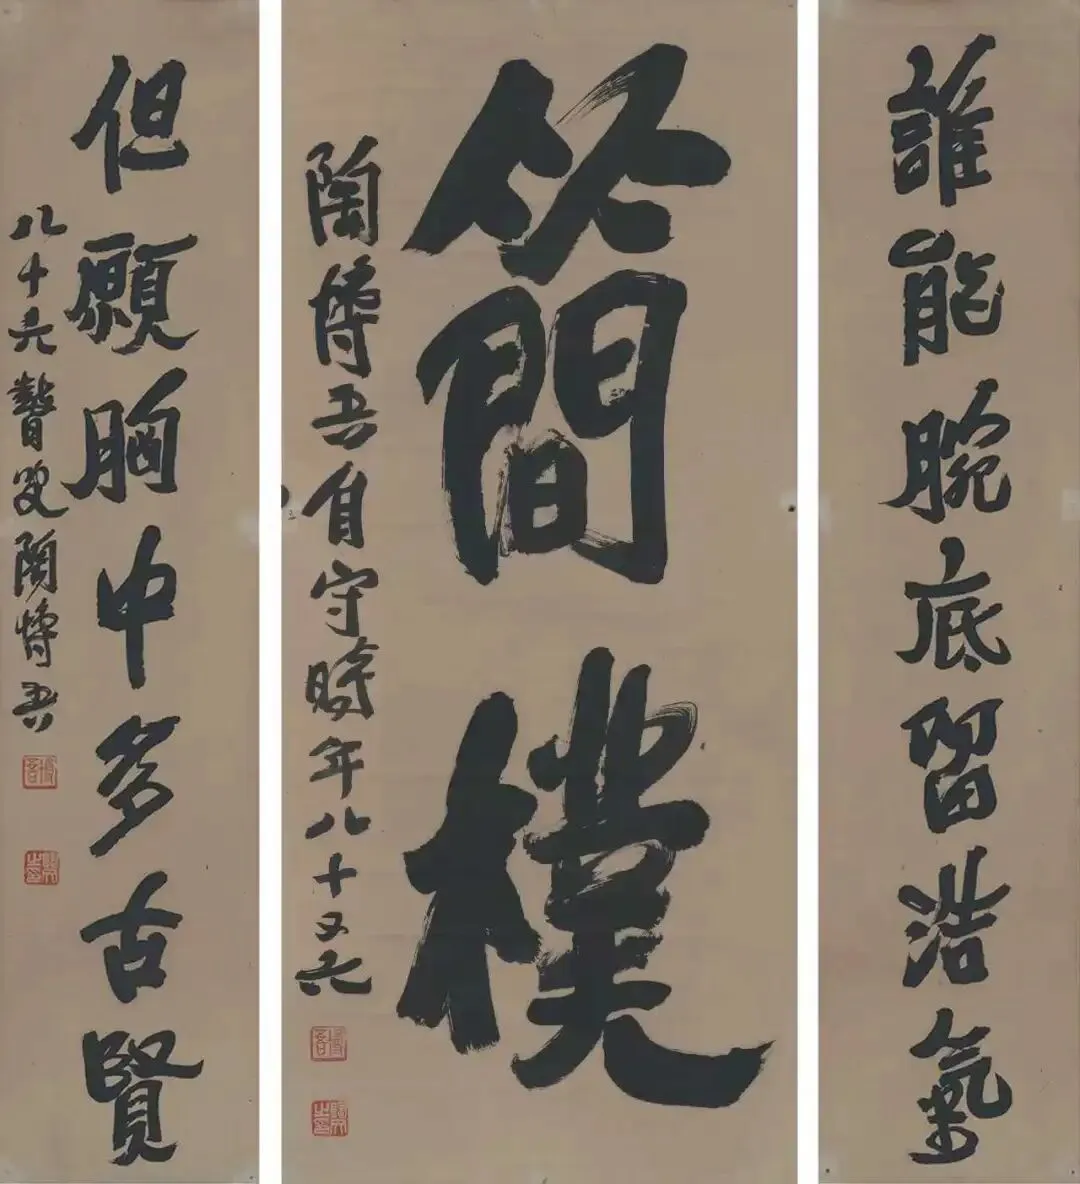 誰能腕底留浩氣
簡樸
陶博吾自守時年八十又六
但願胸中多古賢
八十六瞽叟陶博吾